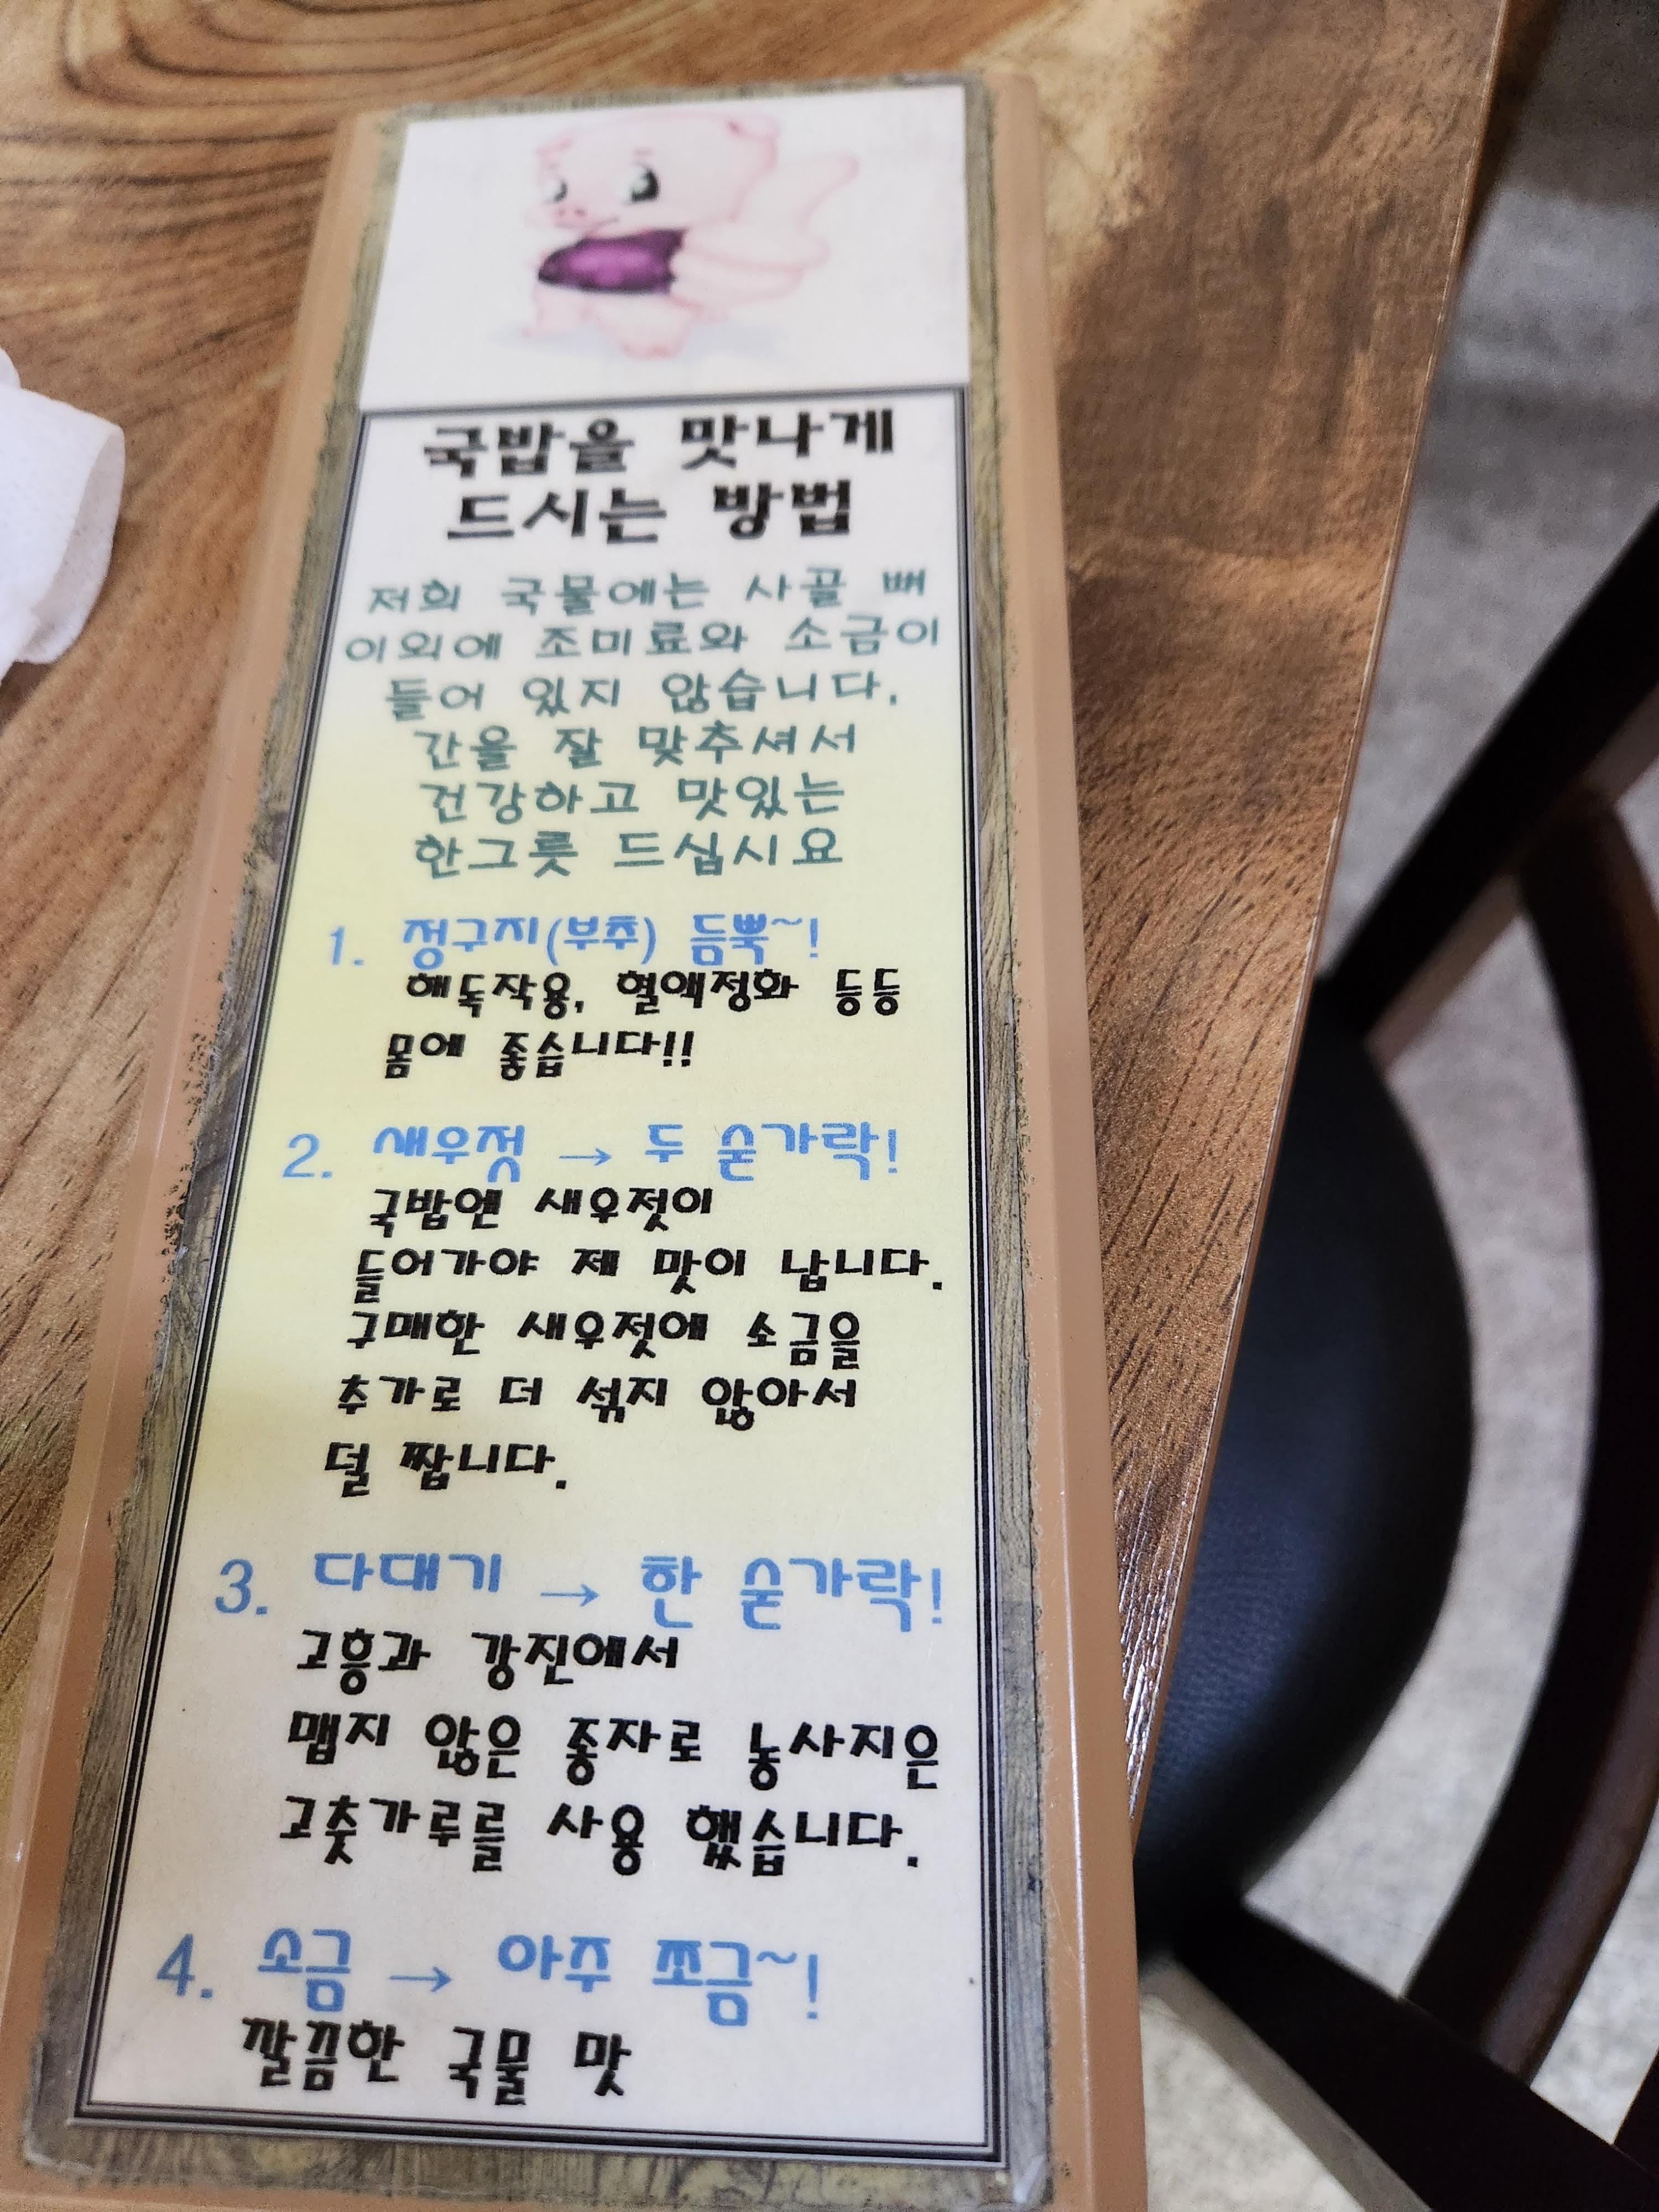 국밥을 맛나게
드시는 방법
저희 국물에는 사골 뼈
이외에 조미료와 소금이
들어 있지 않습니다.
간을 잘 맞추셔서
건강하고 맛있는
한그릇 드십시요
1. 정구지(부추) 듬뿍~!
해독작용, 혈액정화 등등
몸에 좋습니다!!
2. 새우젓 → 두 숟가락!
국밥엔 새우젓이
들어가야 제 맛이 납니다.
구매한 새우젓에 소금을
추가로 더 섞지 않아서
덜 짭니다.
3. 다대기 → 한 숟가락!
고흥과 강진에서
맵지 않은 종자로 농사지은
고춧가루를 사용 했습니다.
4. 소금 → 아주 쪼금~!
깔끔한 국물 맛